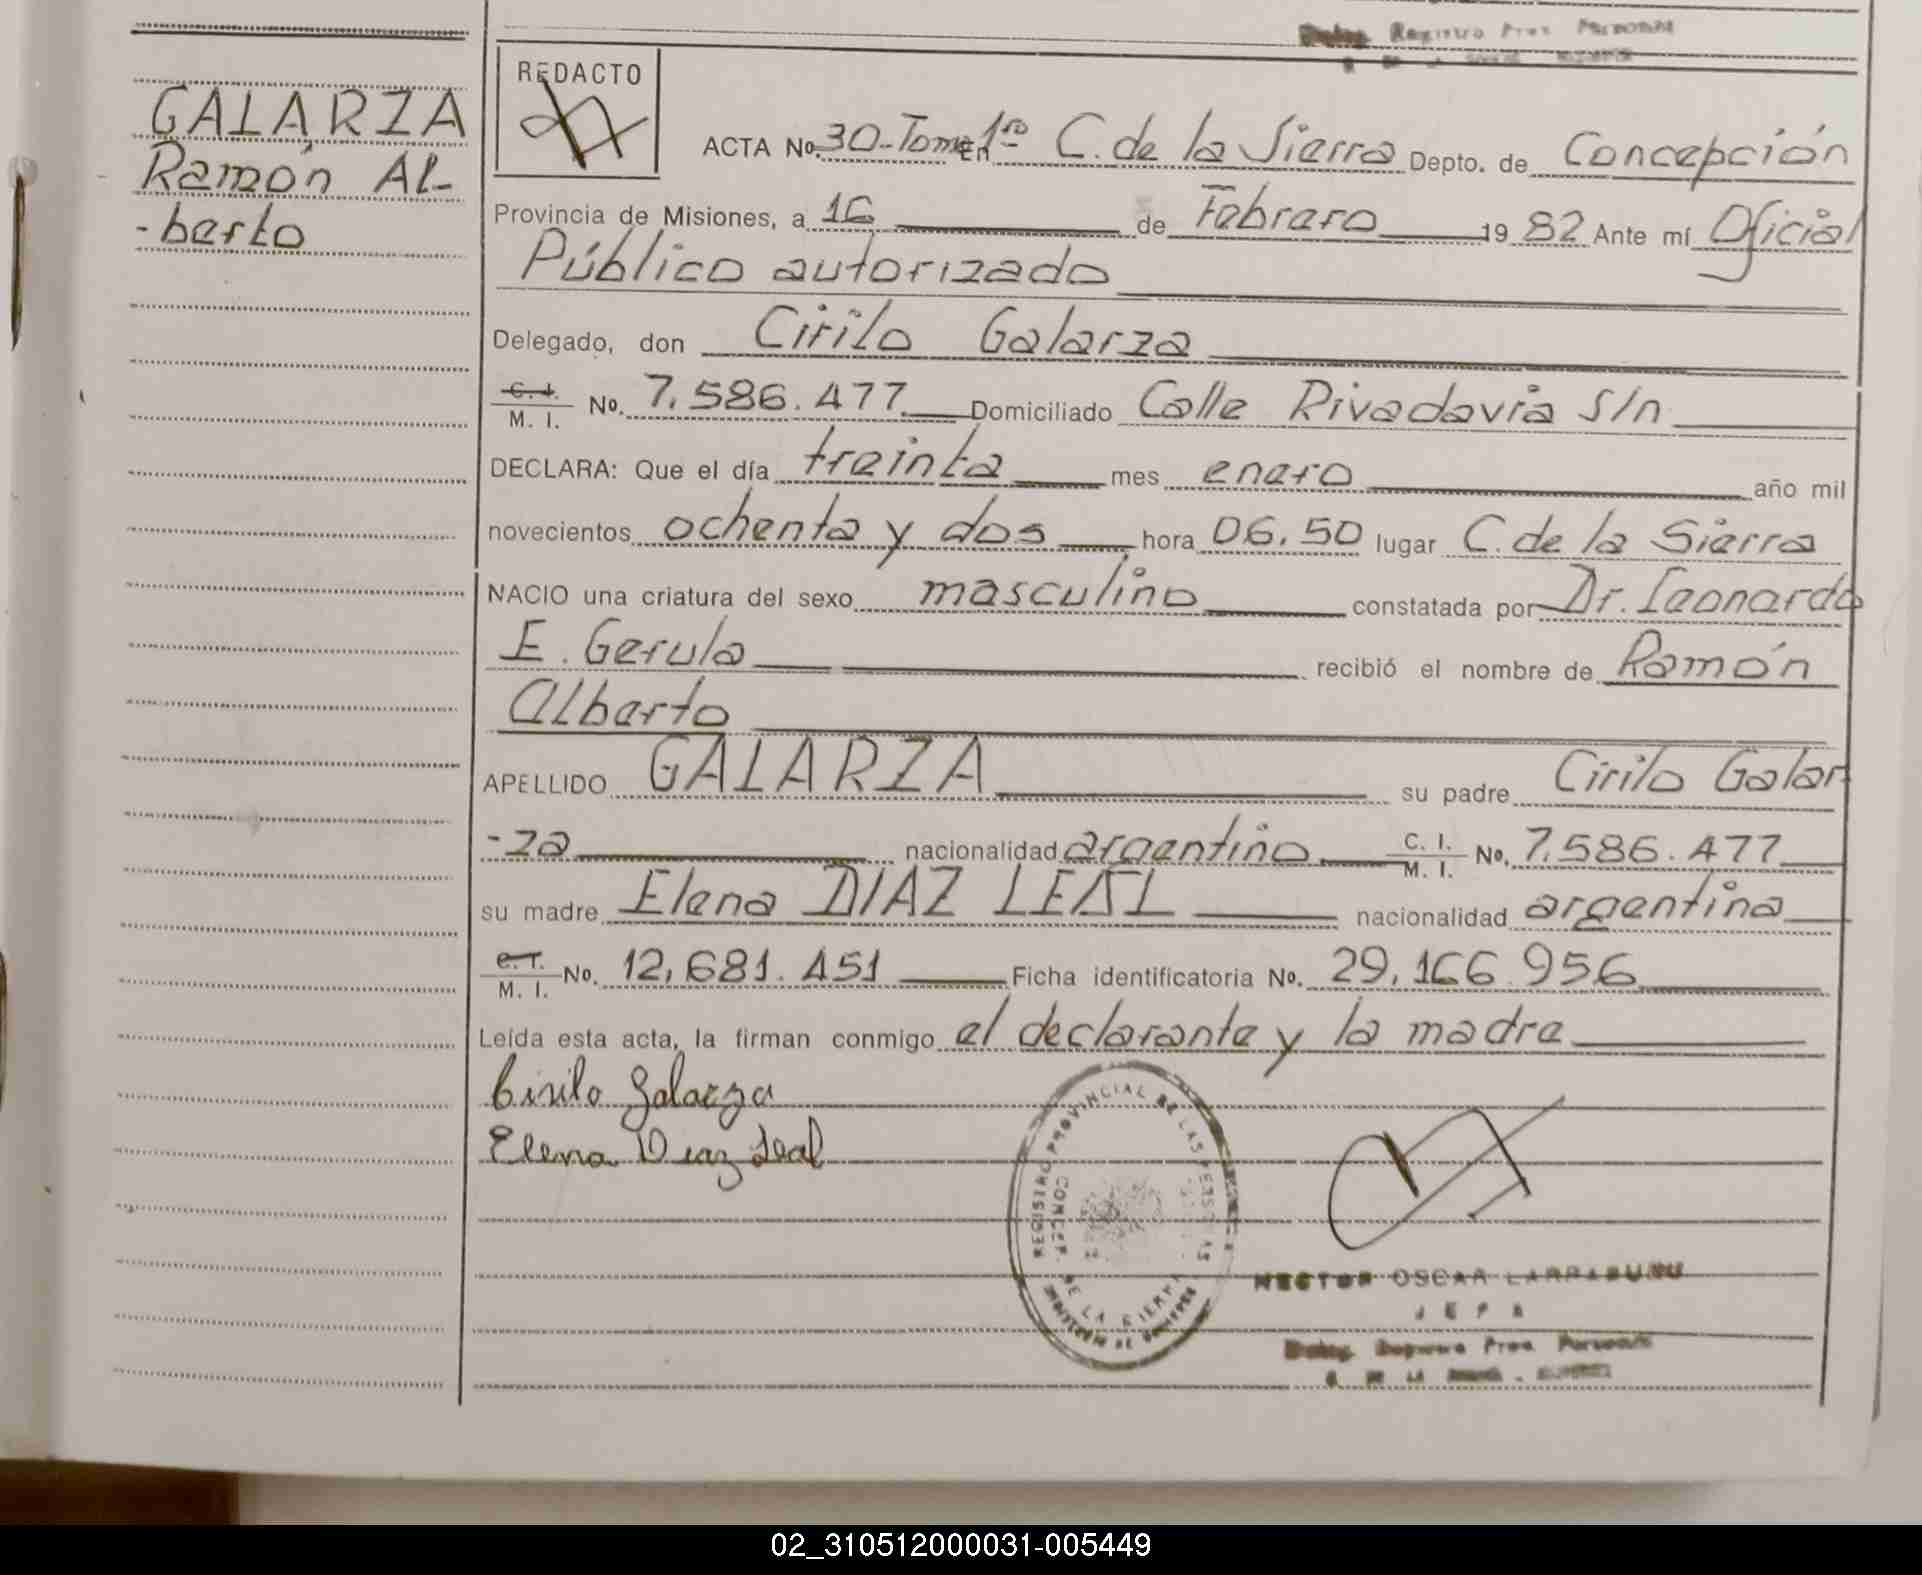 Deleg. Registro Prov. Personas
C. DE LA SIERRA - MISIONES
GALARZA
Ramón Al-
-berto
REDACTO
ACTA No. 30-Tomo 1ro En C. de la Sierra Depto. de Concepción
Provincia de Misiones, a 16 de Febrero 19 82 Ante mí Oficial
Público autorizado
Delegado, don Cirilo Galarza
C. I. M. I. No. 7.586.477 Domiciliado Calle Rivadavia s/n
DECLARA: Que el día treinta mes enero año mil
novecientos ochenta y dos hora 06.50 lugar C. de la Sierra
NACIO una criatura del sexo masculino constatada por Dr. Leonardo
E. Gerula recibió el nombre de Ramón
Alberto
APELLIDO GALARZA su padre Cirilo Galar
-za nacionalidad argentino C. I. M. I. No. 7.586.477
su madre Elena DIAZ LEAL nacionalidad argentina
C. I. M. I. No. 12.681.451 Ficha identificatoria No. 29.166.956
Leída esta acta, la firman conmigo el declarante y la madre
Cirilo Galarza
Elena Diaz Leal
REGISTRO PROVINCIAL DE LAS PERSONAS
CONCEP. DE LA SIERRA
MINISTERIO DE GOBIERNO
HECTOR OSCAR LARRABURU
JEFE
Deleg. Registro Prov. Personas
C. DE LA SIERRA - MISIONES
02_310512000031-005449